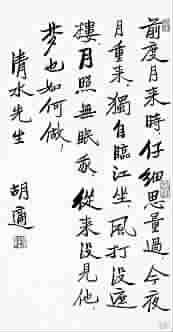 前度月来時,仔细思量過。今夜
月重来,獨自臨江坐。風打没遮
樓,月照無眠我。從来没見他,
梦也如何做!
清水先生 胡適